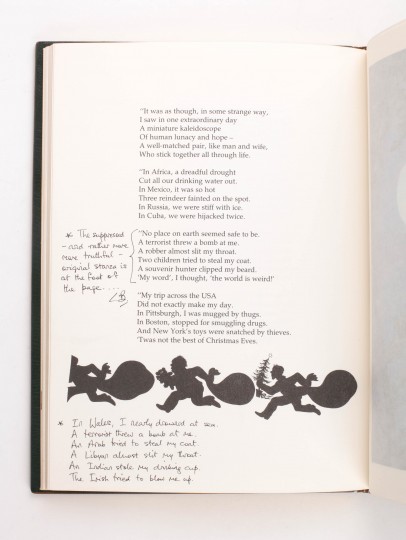 "It was as though, in some strange way,
I saw in one extraordinary day
A miniature kaleidoscope
Of human lunacy and hope –
A well-matched pair, like man and wife,
Who stick together all through life.
"In Africa, a dreadful drought
Cut all our drinking water out.
In Mexico, it was so hot
Three reindeer fainted on the spot.
In Russia, we were stiff with ice.
In Cuba, we were hijacked twice.
* The suppressed
– and rather more
more truthful –
original stanza is
at the foot of
the page ....
"No place on earth seemed safe to be.
A terrorist threw a bomb at me.
A robber almost slit my throat.
Two children tried to steal my coat.
A souvenir hunter clipped my beard.
'My word', I thought, 'the world is weird!'
"My trip across the USA
Did not exactly make my day.
In Pittsburgh, I was mugged by thugs.
In Boston, stopped for smuggling drugs.
And New York's toys were snatched by thieves.
'Twas not the best of Christmas Eves.
* In Wales, I nearly drowned at sea.
A terrorist threw a bomb at me.
An Arab tried to steal my coat.
A Libyan almost slit my throat.
An Indian stole my drinking cup.
The Irish tried to blow me up.